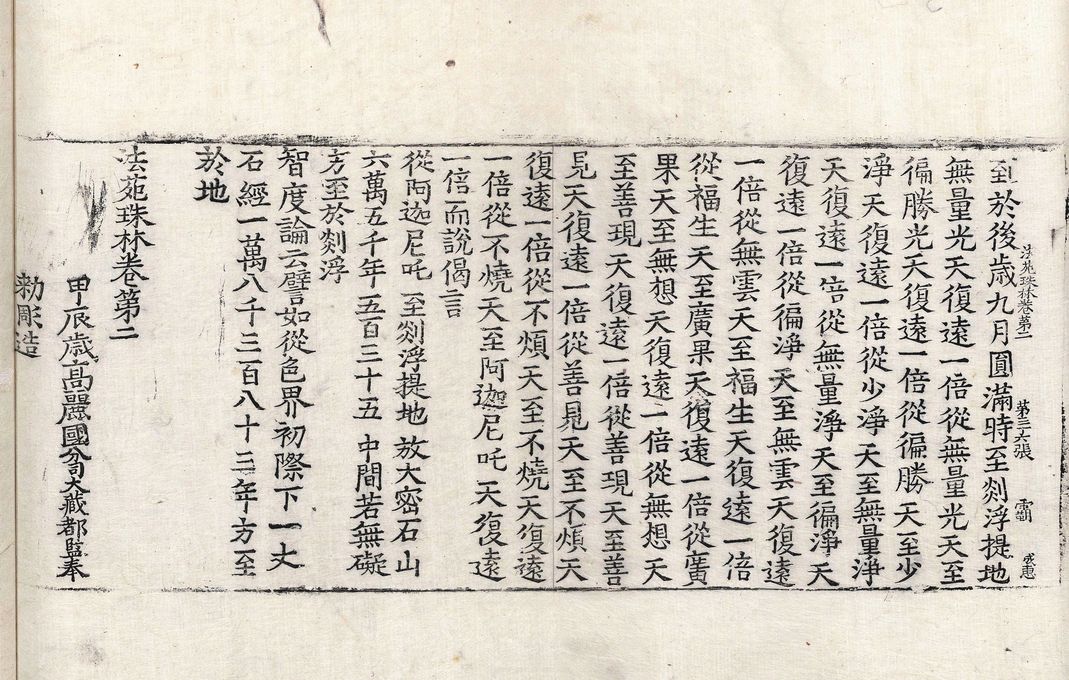 法苑珠林卷第二 第三六張
至於後歲九月圓滿時至剡浮提地
無量光天復遠一倍從無量光天至
徧勝光天復遠一倍從徧勝天至少
淨天復遠一倍從少淨天至無量淨
天復遠一倍從無量淨天至徧淨天
復遠一倍從徧淨天至無雲天復遠
一倍從無雲天至福生天復遠一倍
從福生天至廣果天復遠一倍從廣
果天至無想天復遠一倍從無想天
至善現天復遠一倍從善現天至善
見天復遠一倍從善見天至不煩天
復遠一倍從不煩天至不燒天復遠
一倍從不燒天至阿迦尼吒天復遠
一倍而說偈言
從阿迦尼吒 至剡浮提地 放大密石山
六萬五千年 五百三十五 中間若無礙
方至於剡浮
智度論云譬如從色界初際下一丈
石經一萬八千三百八十三年方至
於地
法苑珠林卷第二
甲辰歲高麗國分司大藏都監奉
勑彫造